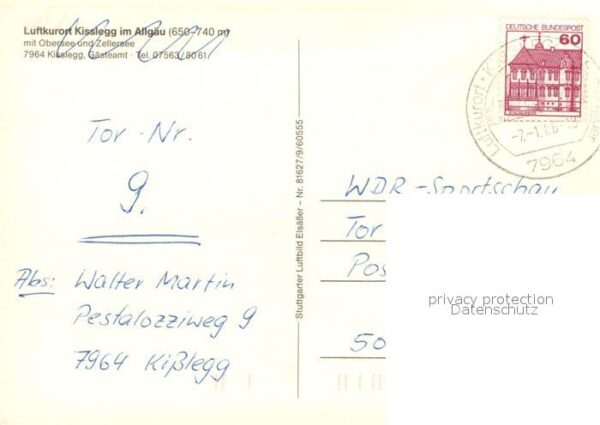 Luftkurort Kisslegg im Allgäu (650-740 m)
mit Obersee und Zellersee
7964 Kisslegg, Gästeamt · Tel. 07563/8061
Tor-Nr.
9.
Abs: Walter Martin
Pestalozziweg 9
7964 Kißlegg
Stuttgarter Luftbild Elsäßer – Nr. 81627/9/60555
DEUTSCHE BUNDESPOST
60
Luftkurort
7964
WDR-Sportschau
Tor
Pos
50
privacy protection
Datenschutz